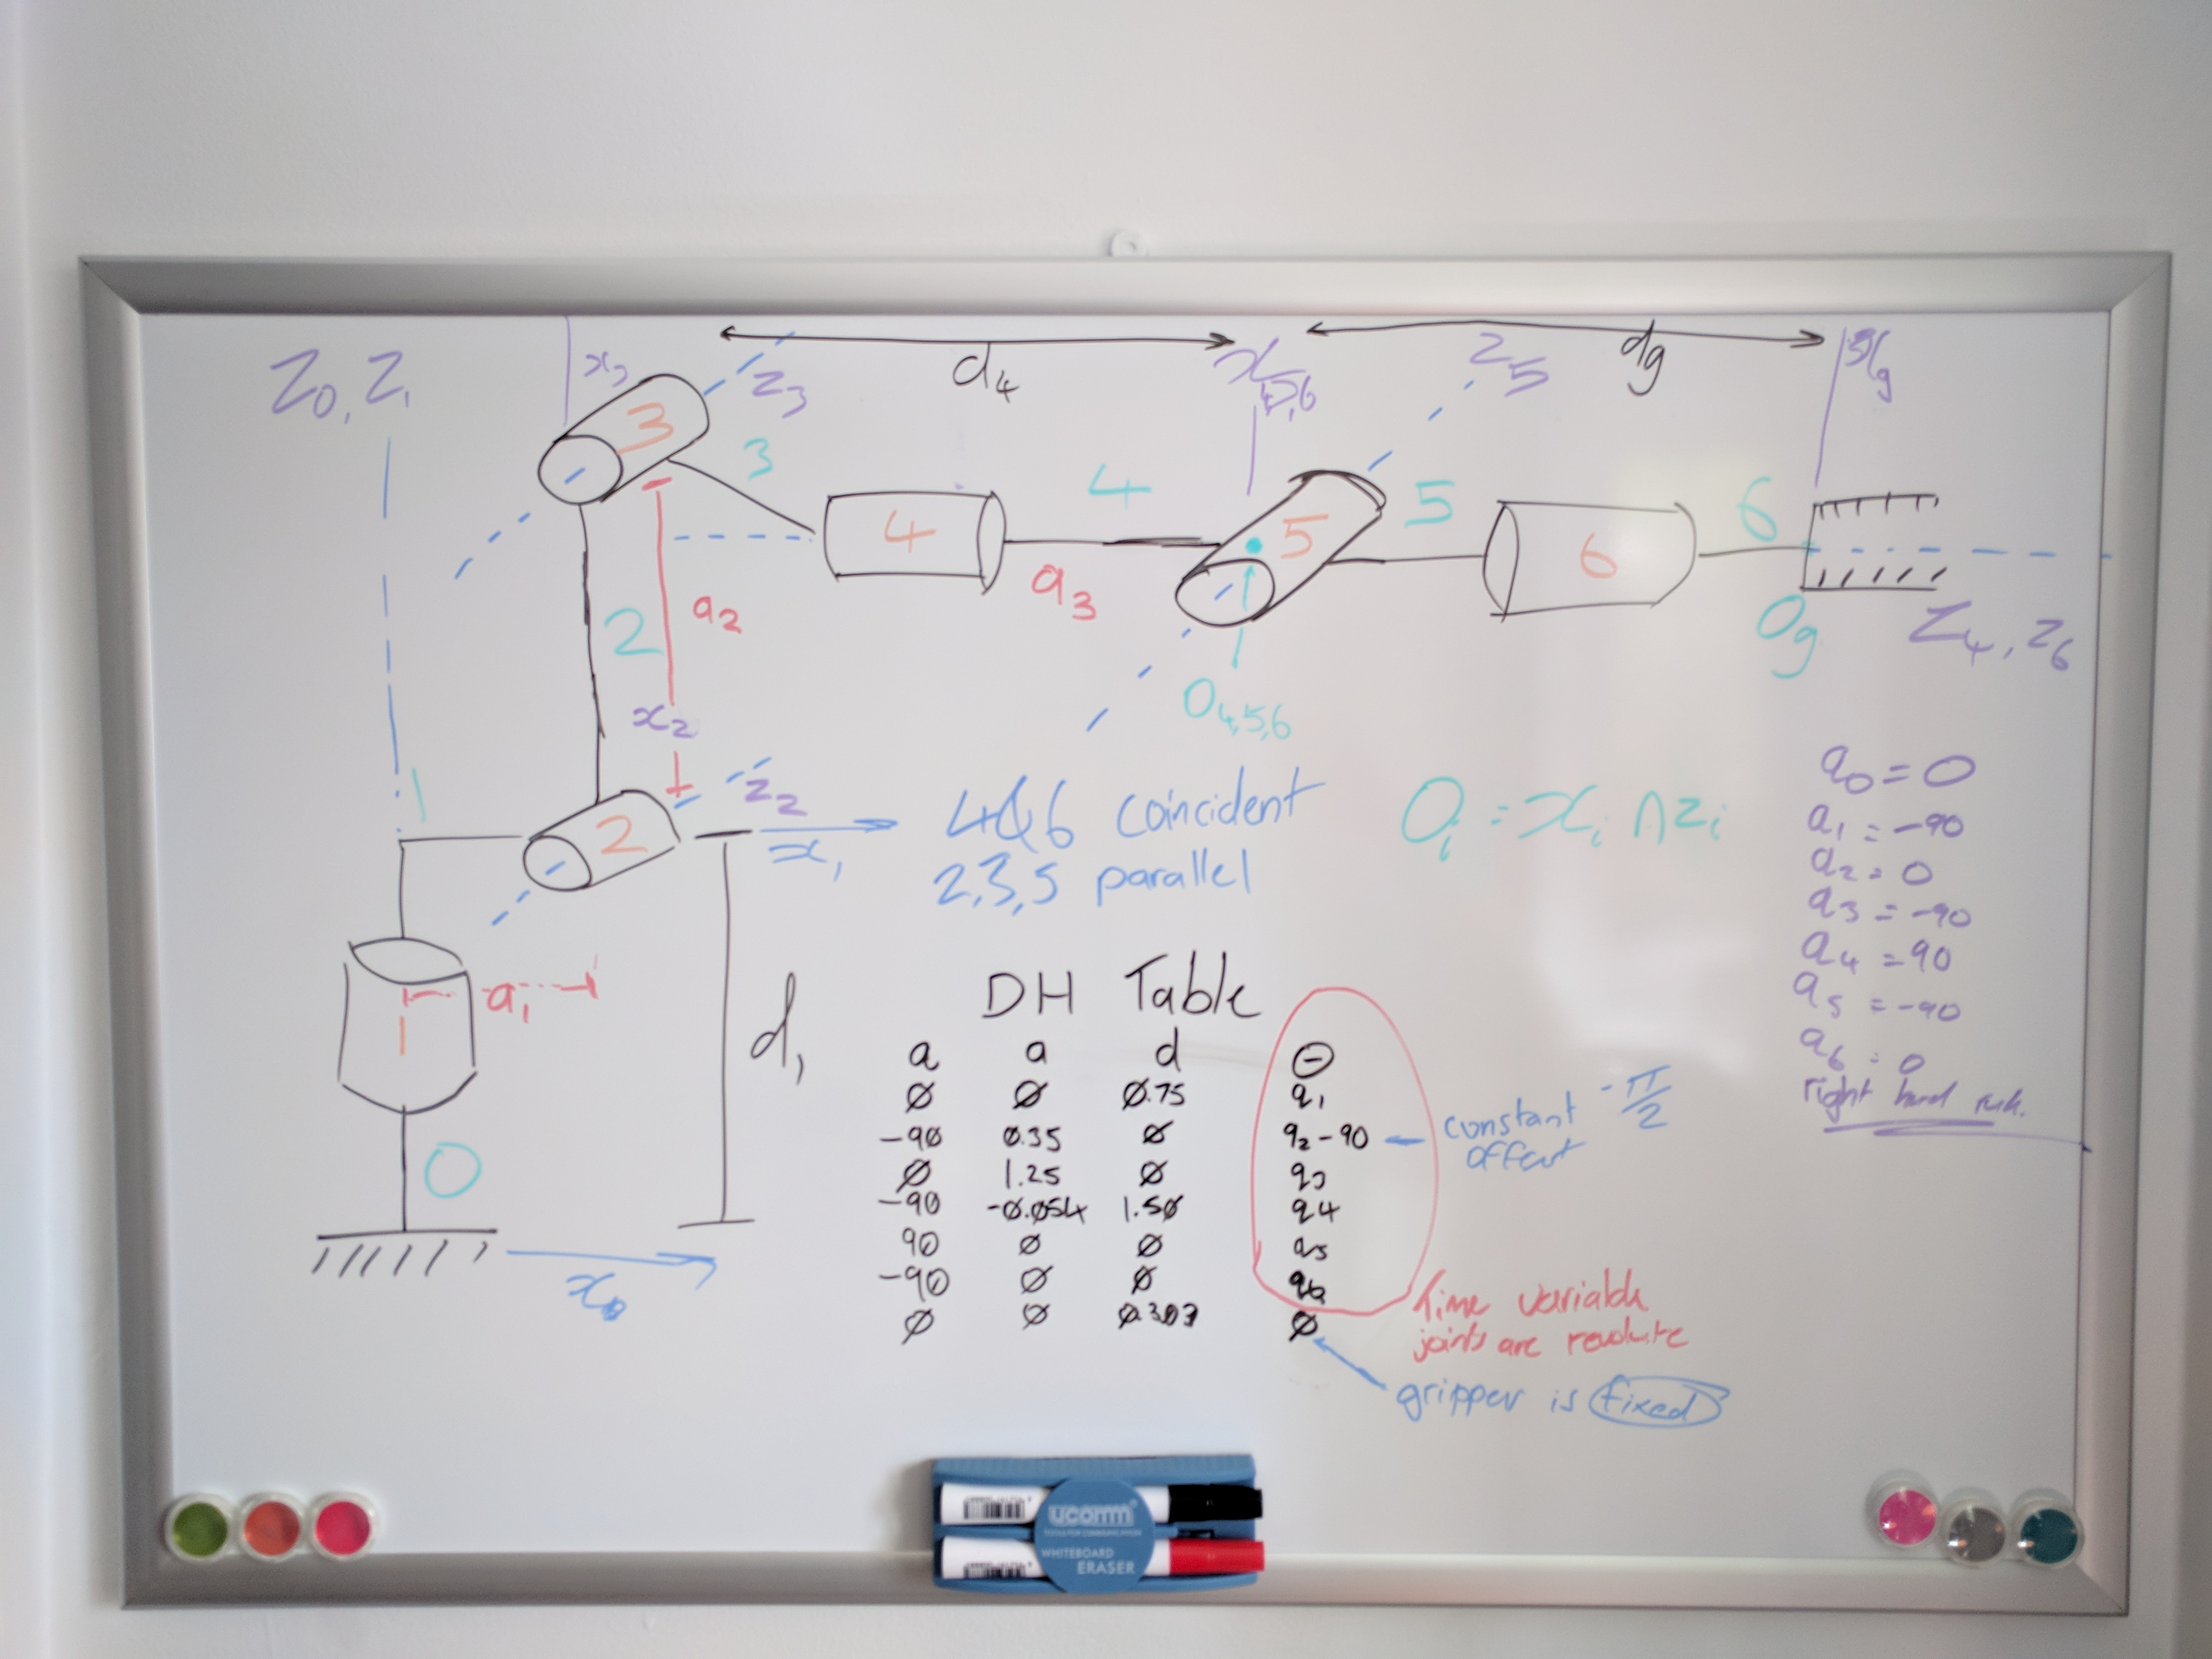 Z0, Z1
x3
z3
d4
x4,5,6
z5
dg
xg
3
3
4
4
5
5
6
6
a3
a2
2
x2
O4,5,6
Og
Z4, z6
1
2
z2
x1
4&6 coincident
2,3,5 parallel
Oi = xi ∩ zi
a0 = 0
a1 = -90
a2 = 0
a3 = -90
a4 = 90
a5 = -90
a6 = 0
right hand rule.
a1
1
d1
0
x0
DH Table
a a d Θ
Ø Ø Ø.75 q1
-9Ø Ø.35 Ø q2-90
Ø 1.25 Ø q3
-9Ø -Ø.Ø54 1.5Ø q4
90 Ø Ø q5
-90 Ø Ø q6
Ø Ø Ø.303 Ø
constant -π/2
offset
time variable
joints are revolute
gripper is fixed
ucomm
TOOLS FOR COMMUNICATION
WHITEBOARD
ERASER